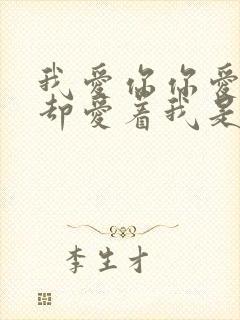 我爱你你爱
却爱着我是
李生才